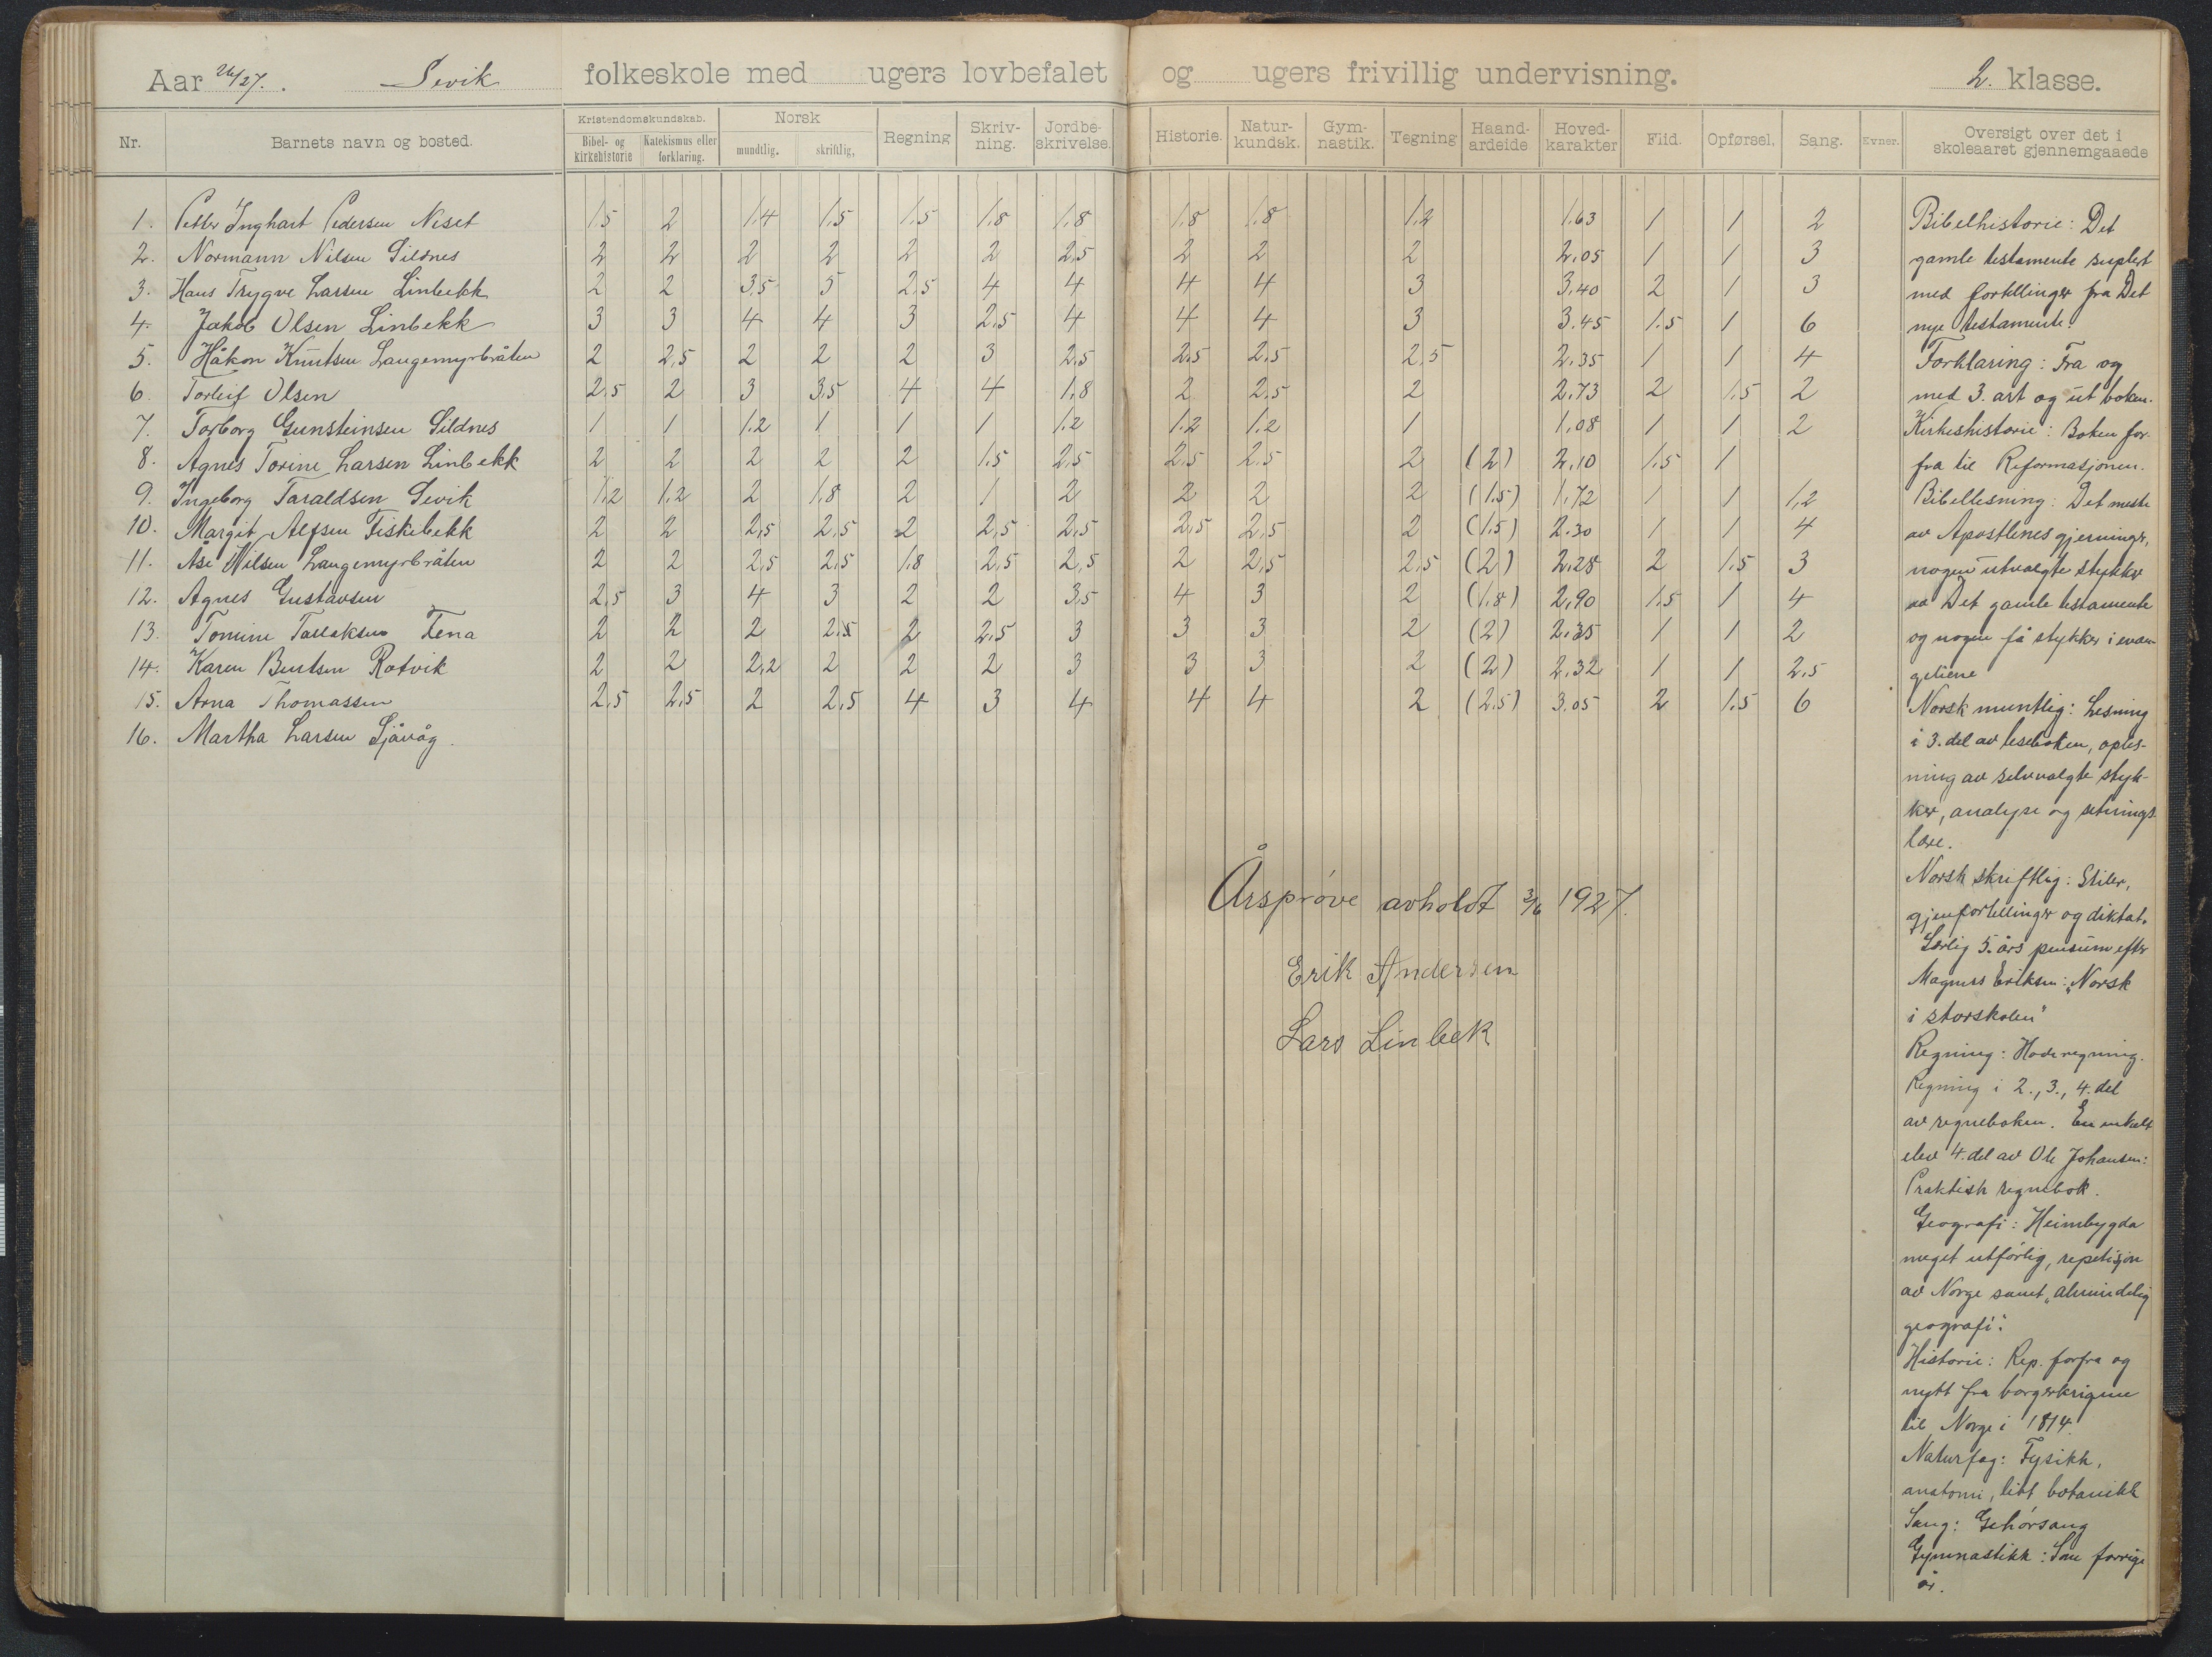 Aar 26/27. Sevik folkeskole med ugers lovbefalet og ugers frivillig undervisning. 2. klasse.
Nr. Barnets navn og bosted. Kristendomskundskab. Bibel- og kirkehistorie Katekismus eller forklaring. Norsk mundtlig. skriftlig, Regning Skriv-ning. Jordbe-skrivelse. Historie. Natur-kundsk. Gym-nastik. Tegning Haand-ardeide Hoved-karakter Flid. Opførsel. Sang. Evner. Oversigt over det i skoleaaret gjennemgaaede
1. Petter Inghart Pedersen Neset 1.5 2 1.4 1.5 1.5 1.8 1.8 1.8 1.8 1.2 1.63 1 1 2
2. Normann Nilsen Sildnes 2 2 2 2 2 2 2,5 2 2 2 2.05 1 1 3
3. Hans Trygve Larsen Linbekk 2 2 3,5 5 2.5 4 4 4 4 3 3.40 2 1 3
4. Jakob Olsen Linbekk 3 3 4 4 3 2,5 4 4 4 3 3.45 1.5 1 6
5. Håkon Knutsen Langemyrbråten 2 2,5 2 2 2 3 2,5 2,5 2,5 2,5 2.35 1 1 4
6. Torleif Olsen 2,5 2 3 3,5 4 4 1,8 2 2,5 2 2,73 2 1.5 2
7. Torborg Gunsteinsen Sildnes 1 1 1.2 1 1 1 1.2 1.2 1.2 1 1.08 1 1 2
8. Agnes Torine Larsen Linbekk 2 2 2 2 2 1.5 2,5 2.5 2.5 2 (2) 2,10 1.5 1
9. Ingeborg Taraldsen Sevik 1,2 1,2 2 1,8 2 1 2 2 2 2 (1.5) 1,72 1 1 1,2
10. Margit Alfsen Fiskebekk 2 2 2,5 2,5 2 2,5 2,5 2,5 2,5 2 (1.5) 2.30 1 1 4
11. Åse Nilsen Langemyrbråten 2 2 2,5 2,5 1,8 2,5 2,5 2 2,5 2,5 (2) 2,28 2 1.5 3
12. Agnes Gustavsen 2,5 3 4 3 2 2 3,5 4 3 2 (1.8) 2,90 1.5 1 4
13. Tomine Tallaksen Tena 2 2 2 2.5 2 2.5 3 3 3 2 (2) 2.35 1 1 2
14. Karen Bentsen Rotvik 2 2 2,2 2 2 2 3 3 3 2 (2) 2,32 1 1 2,5
15. Arna Thomassen 2,5 2,5 2 2,5 4 3 4 4 4 2 (2.5) 3.05 2 1.5 6
16. Martha Larsen Sjåvåg.
Årsprøve avholdt 3/6 1927.
Erik Andersen
Lars Linbek
Bibelhistorie: Det
gamle testamente suplert
med fortellinger fra Det
nye testamente.
Forklaring: Fra og
med 3. art og ut boken.
Kirkeshistorie: Boken for-
fra til Reformasjonen.
Bibellesning: Det meste
av Apostlenes gjerninger,
nogen utvalgte stykker
av Det gamle testamente
og nogen få stykker i evan-
geliene
Norsk muntlig: Lesning
i 3. del av leseboken, oples-
ning av selvvalgte styk-
ker, analyse og setnings-
lære.
Norsk skriftlig: Stiler,
gjenfortellinger og diktat.
Særlig 5. års pensum efter
Magnus Eriksen: "Norsk
i storskolen"
Regning: Hoderegning.
Regning i 2., 3., 4. del
av regneboken. En enkelt
elev 4. del av Ole Johansen:
Praktisk regnebok.
Geografi: Heimbygda
meget utførlig, repetisjon
av Norge samt "almindelig
geografi".
Historie: Rep. forfra og
nytt fra borgerkrigene
til Norge i 1814.
Naturfag: Fysikk,
anatomi, litt botanikk
Sang: Gehørsang
Gymnastikk: Som forrige
år.